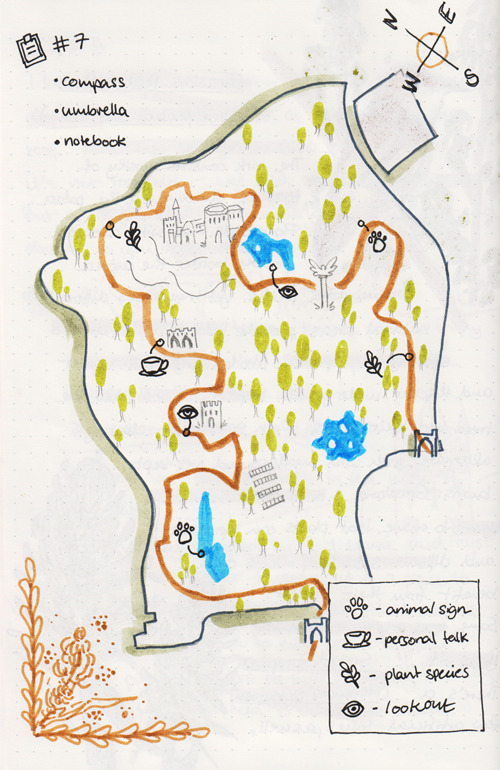 #7
• compass
• umbrella
• notebook
N
E
W
S
- animal sign
- personal talk
- plant species
- lookout